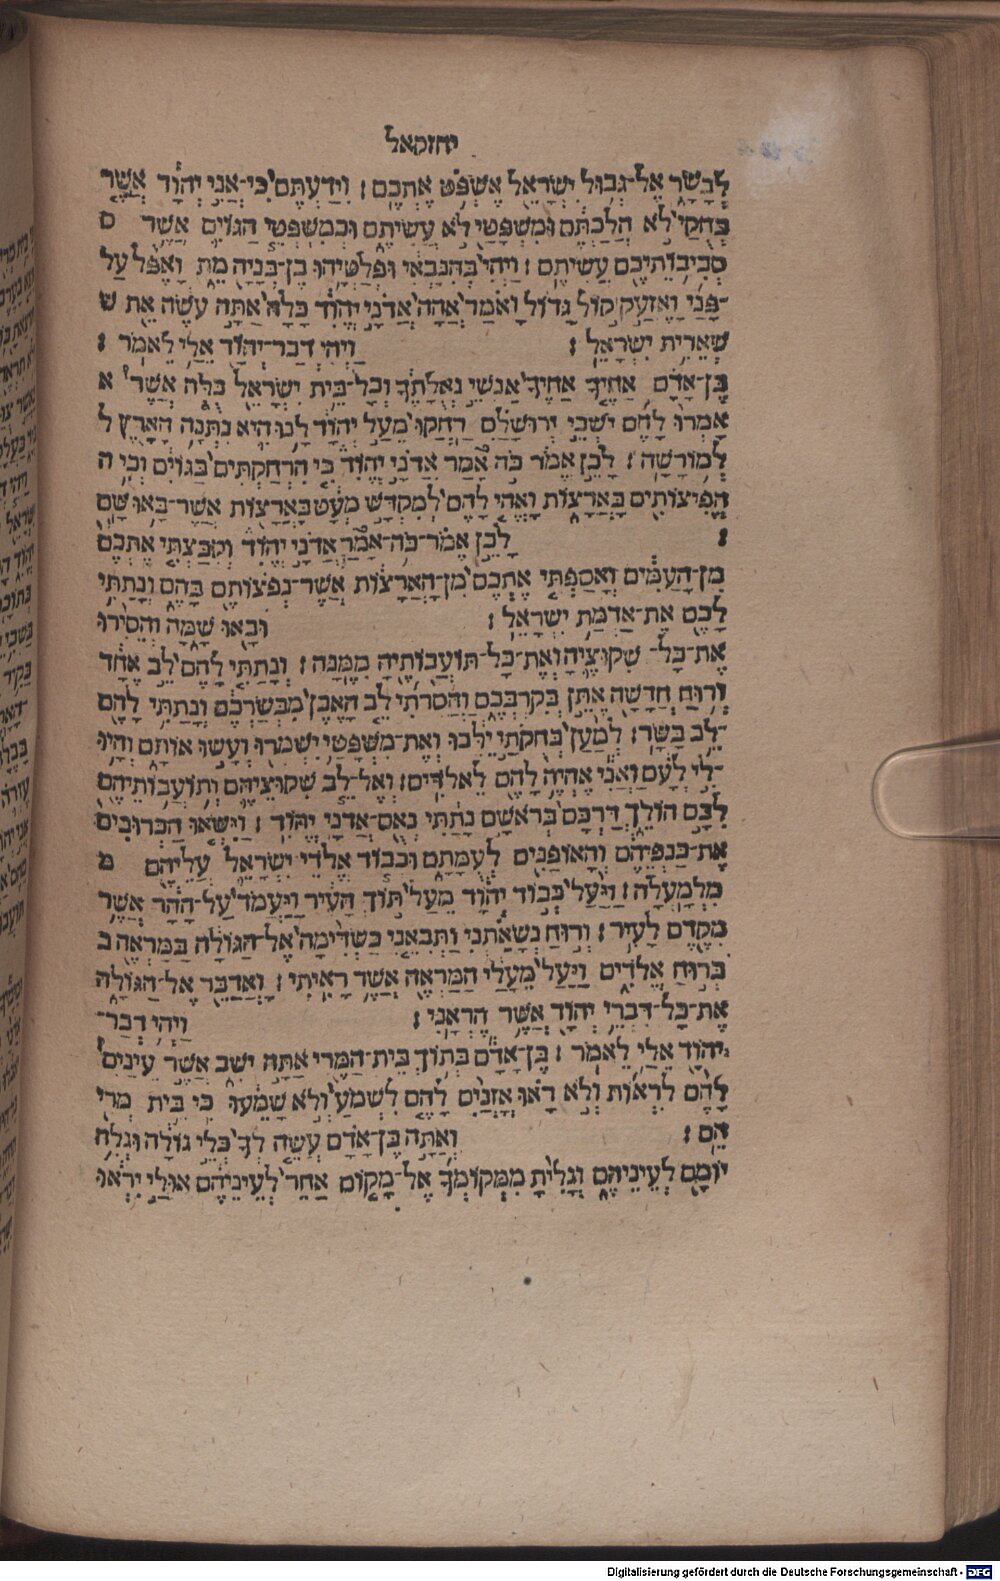 יחזקאל
לְבָשָׂר אֶל־גְּבוּל יִשְׂרָאֵל אֶשְׁפֹּט אֶתְכֶם׃ וִידַעְתֶּם כִּי־אֲנִי יְהוָֹד אֲשֶׁר
בְּחֻקַּי לֹא הֲלַכְתֶּם וּמִשְׁפָּטַי לֹא עֲשִׂיתֶם וּכְמִשְׁפְּטֵי הַגּוֹיִם אֲשֶׁר ס
סְבִיבוֹתֵיכֶם עֲשִׂיתֶם׃ וַיְהִי בְּהִנָּבְאִי וּפְלַטְיָהוּ בֶן־בְּנָיָה מֵת וָאֶפֹּל עַל
־פָּנַי וָאֶזְעַק קוֹל גָּדוֹל וָאֹמַר אֲהָהּ אֲדֹנָי יֱהוִֹד כָּלָה אַתָּה עֹשֶׂה אֵת ש
שְׁאֵרִית יִשְׂרָאֵל׃ וַיְהִי דְבַר־יְהוָֹד אֵלַי לֵאמֹר׃
בֶּן־אָדָם אַחֶיךָ אַחֶיךָ אַנְשֵׁי גְאֻלָּתֶךָ וְכָל־בֵּית יִשְׂרָאֵל כֻּלֹּה אֲשֶׁר א
אָמְרוּ לָהֶם יֹשְׁבֵי יְרוּשָׁלַם רַחֲקוּ מֵעַל יְהוָֹד לָנוּ הִיא נִתְּנָה הָאָרֶץ ל
לְמוֹרָשָׁה׃ לָכֵן אֱמֹר כֹּה אָמַר אֲדֹנָי יֱהוִֹד כִּי הִרְחַקְתִּים בַּגּוֹיִם וְכִי ה
הֲפִיצוֹתִים בָּאֲרָצוֹת וָאֱהִי לָהֶם לְמִקְדָּשׁ מְעַט בָּאֲרָצוֹת אֲשֶׁר־בָּאוּ שָׁם
׃ לָכֵן אֱמֹר־כֹּה־אָמַר אֲדֹנָי יֱהוִֹד וְקִבַּצְתִּי אֶתְכֶם
מִן־הָעַמִּים וְאָסַפְתִּי אֶתְכֶם מִן־הָאֲרָצוֹת אֲשֶׁר־נְפֹצוֹתֶם בָּהֶם וְנָתַתִּי
לָכֶם אֶת־אַדְמַת יִשְׂרָאֵל׃ וּבָאוּ שָׁמָּה וְהֵסִירוּ
אֶת־כָּל־ שִׁקּוּצֶיהָ וְאֶת־כָּל־תּוֹעֲבוֹתֶיהָ מִמֶּנָּה׃ וְנָתַתִּי לָהֶם לֵב אֶחָד
וְרוּחַ חֲדָשָׁה אֶתֵּן בְּקִרְבְּכֶם וַהֲסִרֹתִי לֵב הָאֶבֶן מִבְּשַׂרְכֶם וְנָתַתִּי לָהֶם
־לֵב בָּשָׂר׃ לְמַעַן בְּחֻקֹּתַי יֵלֵכוּ וְאֶת־מִשְׁפָּטַי יִשְׁמְרוּ וְעָשׂוּ אוֹתָם וְהָיוּ
־לִי לְעָם וַאֲנִי אֶהְיֶה לָהֶם לֵאלֹדִים׃ וְאֶל־לֵב שִׁקּוּצֵיהֶם וְתוֹעֲבוֹתֵיהֶם
לִבָּם הוֹלֵךְ דַּרְכָּם בְּרֹאשָׁם נָתַתִּי נְאֻם־אֲדֹנָי יֱהוִֹד׃ וַיִּשְׂאוּ הַכְּרוּבִים
אֶת־כַּנְפֵיהֶם וְהָאוֹפַנִּים לְעֻמָּתָם וּכְבוֹד אֱלֹדֵי יִשְׂרָאֵל עֲלֵיהֶם מ
מִלְמָעְלָה׃ וַיַּעַל כְּבוֹד יְהוָֹד מֵעַל תּוֹךְ הָעִיר וַיַּעֲמֹד עַל־הָהָר אֲשֶׁר
מִקֶּדֶם לָעִיר׃ וְרוּחַ נְשָׂאַתְנִי וַתְּבִאֵנִי כַשְׂדִּימָה אֶל־הַגּוֹלָה בַּמַּרְאֶה ב
בְּרוּחַ אֱלֹדִים וַיַּעַל מֵעָלַי הַמַּרְאֶה אֲשֶׁר רָאִיתִי׃ וָאֲדַבֵּר אֶל־הַגּוֹלָה
אֶת־כָּל־דִּבְרֵי יְהוָֹד אֲשֶׁר הֶרְאָנִי׃ וַיְהִי דְבַר־
יְהוָֹד אֵלַי לֵאמֹר׃ בֶּן־אָדָם בְּתוֹךְ בֵּית־הַמֶּרִי אַתָּה יֹשֵׁב אֲשֶׁר עֵינַיִם
לָהֶם לִרְאוֹת וְלֹא רָאוּ אָזְנַיִם לָהֶם לִשְׁמֹעַ וְלֹא שָׁמֵעוּ כִּי בֵּית מְרִי
הֵם׃ וְאַתָּה בֶן־אָדָם עֲשֵׂה לְךָ כְּלֵי גוֹלָה וּגְלֵה
יוֹמָם לְעֵינֵיהֶם וְגָלִיתָ מִמְּקוֹמְךָ אֶל־מָקוֹם אַחֵר לְעֵינֵיהֶם אוּלַי יִרְאוּ
Digitalisierung gefördert durch die Deutsche Forschungsgemeinschaft - DFG